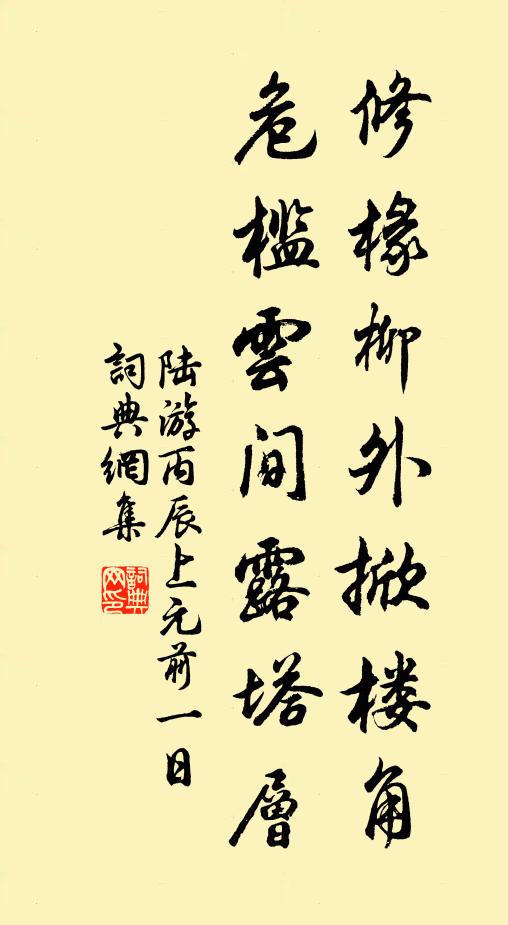 修椽柳外掀楼角
危檻雲间露塔層
陆游丙辰上元前一日
詞典網集
詞典
网印